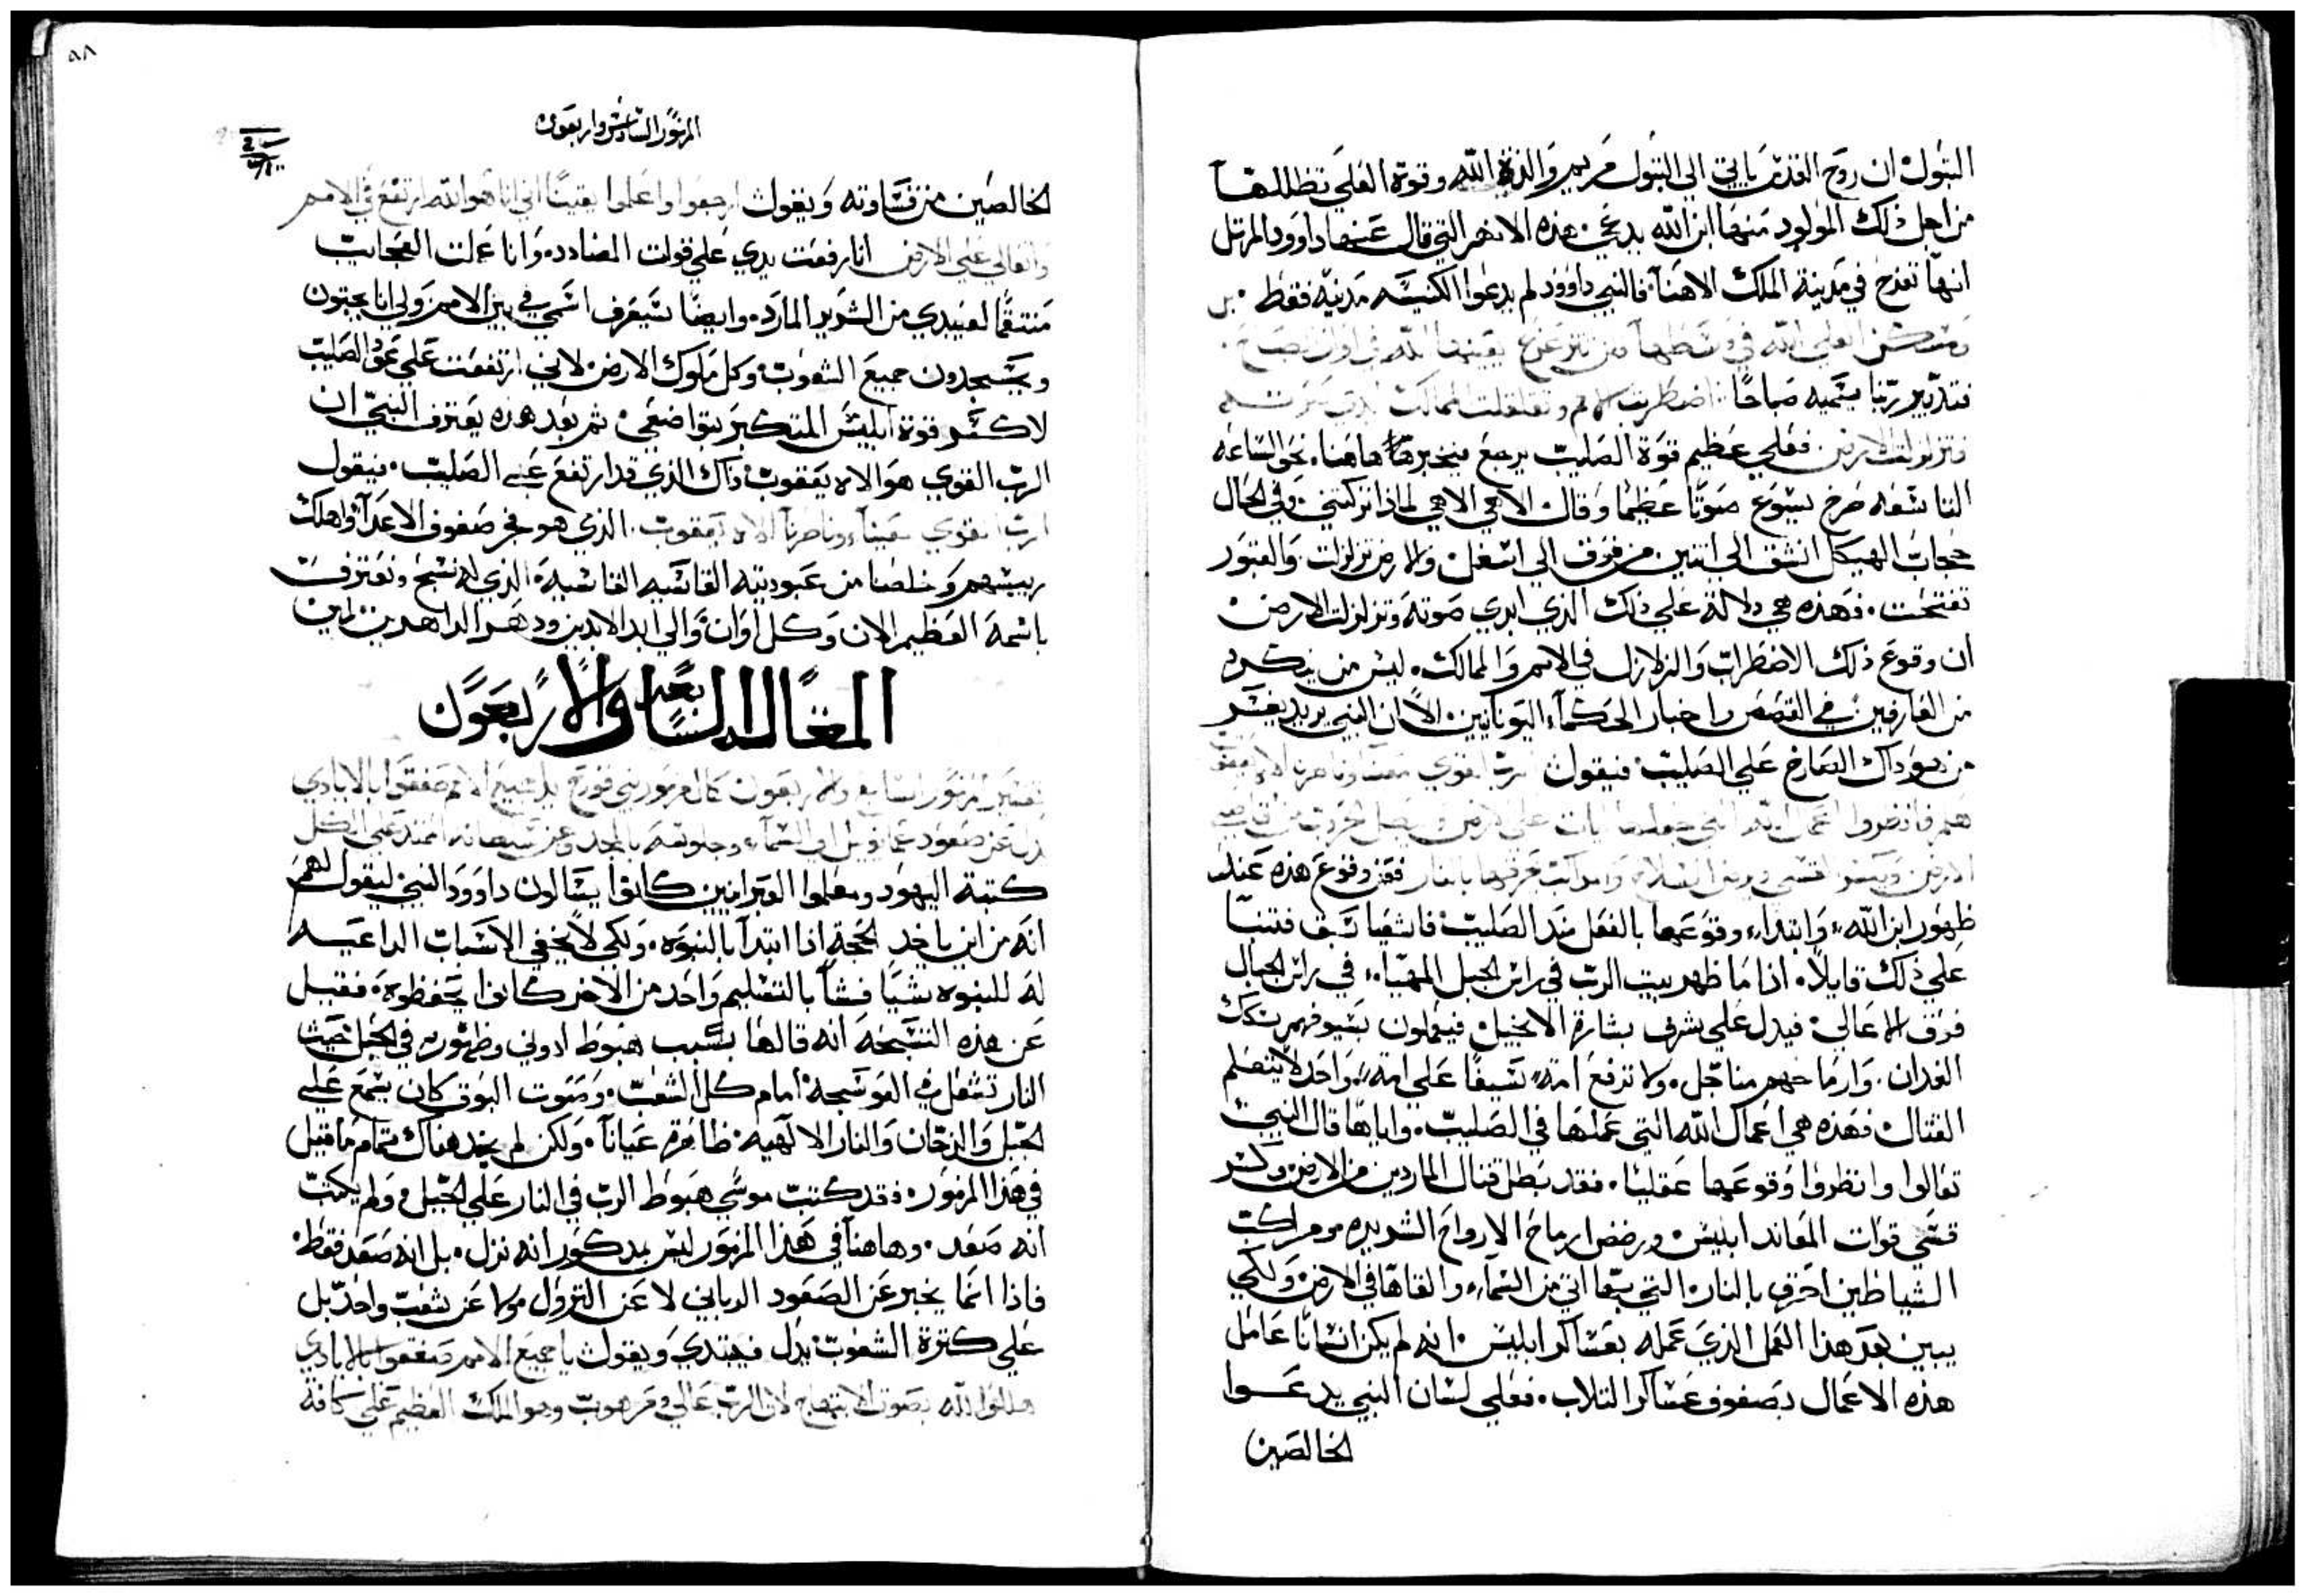 البتول ان روح القدس ياتي الى البتول مريم والذة الله وقوة العلي تظللها
من اجل ذلك المولود منها ابن الله يدعي. هذه الانهر التي قال عنها داوود المرتل
انها تفرح في مدينة الملك الاهنا. فالنبي داوود لم يدعوا الكنيسه مدنيه فقط. بل
ومسكن العلي الله في وسطها ولن تتزعزع يعينها الله في اوان الصباح.
فتدبير ربنا يسميه صباحًا. اضطربت الامم وتقلقلت الممالك
وتزلزلت الارض. فعلي عظيم قوة الصليب يرجع يخبرها هاهنا. نحو الساعه
التاسعه صرخ يسوع صوتًا عظيمًا وقال الاهي الاهي لماذا تركتني وفي الحال
حجاب الهيكل انشق الي اتنين من فوق الي اسفل والارض تزلزلت والقبور
تفتحت. فهذه هي دلالة علي ذلك الذي ابدي صوته وتزلزلت الارض
ان وقوع ذلك الاضطراب والزلازل في الامم والممالك. ليس من ينكره
من العارفين في القصص واخبار الحكماء اليونانين. الا ان النبي يريد يفسر
من هو داك الصارخ علي الصليب فيقول الرب القوي معنا وناصرنا الاه يعقوب
هلم فانظروا اعمال الله التي جعلها ايات علي الارض ويبطل الحروب من اقاصي
الارض ويكسر القسي ويرض السلاح والمراكب يحرقها بالنار فعن وقوع هذه عند
ظهور ابن الله، وابتداء وقوعها بالفعل منذ الصليب فاشعيا سبق فتنبا
علي ذلك قايلاً. اذا ما ظهر بيت الرب في راس الجبل المهيا، في راس الجبال
فوق الاعالي. فيدل علي شرف بشارة الانجيل فيعملون سيوفهم سكك
الفدان. وارماحهم مناجل. ولا ترفع امه سيفًا علي امه، واحد لا يتعلم
القتال فهذه هي اعمال الله التي عملها في الصليب. واياها قال النبي
تعالوا وانظروا وقوعها عقليًا. فقد بطل قتال الماردين من الارض وكسر
قسي قوات المعاند ابليس ورضض ارماح الارواح الشريره ومراكب
الشياطين احرق بالنار التي بها اتي من السماء والقاها في الارض ولكي
يبين بعد هذا العمل الذي عمله بعساكر ابليس انه لم يكن انسانًا عامل
هذه الاعمال بصفوف عساكر التلاب. فعلي لسان النبي يدعوا
الخالصين
٥٨
المزمور السادس واربعون
الخالصين من قساوته ويقول ارجعوا واعلموا يقينًا اني انا هو الله ارتفع في الامم
واتعالي علي الارض انا رفعت يدي علي قولت المضادده وانا عملت العجايب
منتقمًا لعبيدي من الشرير المارد. وايضًا سيعرف اسمي في بين الامم ولي انا يجتون
ويسجدون جميع الشعوب وكل ملوك الارض لاني ارتفعت علي عود الصليب
لاكسر قوة ابليس المتكبر بتواضعي. ثم بعد هذه يعترف النبي ان
الرب القوي هو الاه يعقوب داك الذي قد ارتفع علي الصليب. فيقول
الرب القوي معنا وناصرنا الاه يعقوب. الذي هو فجر صفوف الاعدا واهلك
ريسهم وخلصنا من عبوديته القاسيه الغاشيه. الذي له نسبح ونعترف
باسمه العظيم الان وكل اوان والي ابد الابدين ودهر الداهرين امين
المقاله السابعه والاربعون
تفسير المزمور السابع والاربعون كان لمزمور بني قورح يا جميع الامم صفقوا بالايادي
يدل عن صعود عمانويل الي السماء وجلوسه بالمجد وعن سلطانه الممتد علي الكل
كتبة اليهود ومعلموا العبرانيين كانوا يسالون داوود النبي ليقول لهم
انه من اين ياخد الحجة اذا ابتدا بالنبوه. ولكي لا يخفي الاسباب الداعيه
له للنبوه شيًا فشًا بالتسليم واحد من الاخر كانوا يحفظوه. فقيل
عن هذه التسبحه انه قالها بسبب هبوط ادوني وظهوره في الجبل حيث
النار تشعل في العوسجه امام كل الشعب. وصوت البوق كان يسمع علي
الجبل والدخان والنار الالهيه ظاهره عيانًا. ولكن لم يجد هناك تمام ما قيل
في هذا المزمور. فقد كتب موسي هبوط الرب في النار علي الجبل ولم يكتب
انه صعد. وهاهنا في هذا المزمور ليس بمدكور انه نزل. بل انه صعد فقط.
فاذا انما يخبر عن الصعود الرباني لا عن النزول ولا عن شعب واحد بل
علي كثرة الشعوب يدل فيبتدي ويقول يا جميع الامم صفقوا بالايادي
هللوا لله بصوت الابتهاج لان الرب عالي ومرهوب وهو الملك العظيم علي كافة